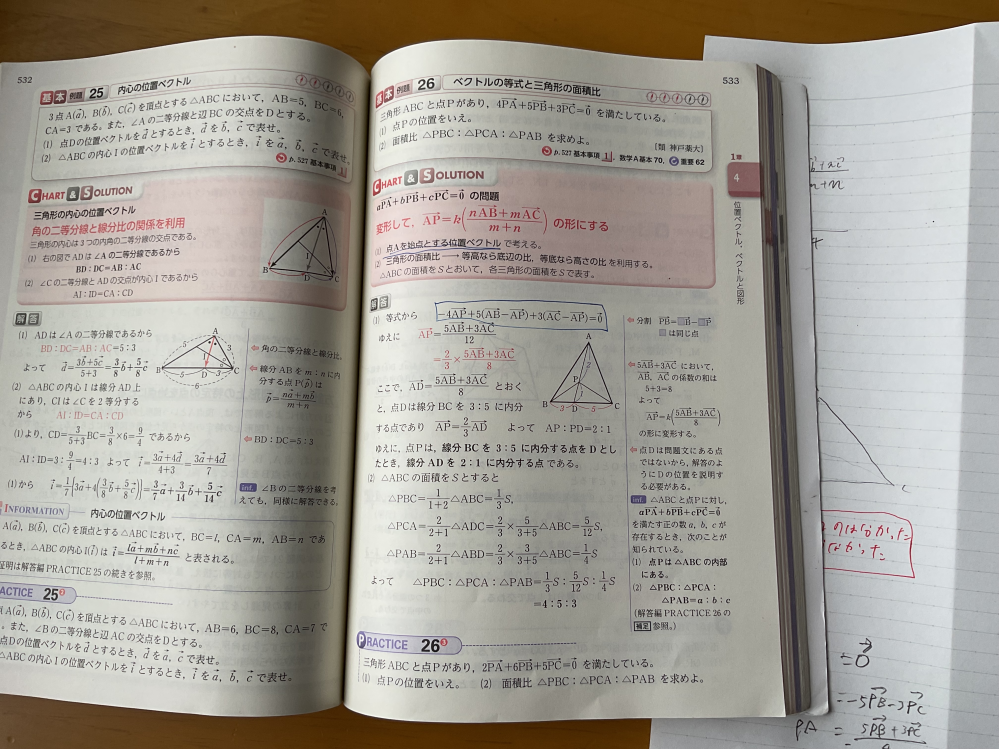 532
基本 例題 25 内心の位置ベクトル
3点A(a→), B(b→), C(c→)を頂点とする△ABCにおいて, AB=5, BC=6,
CA=3である。また, ∠Aの二等分線と辺BCの交点をDとする。
(1) 点Dの位置ベクトルをd→とするとき, d→をb→, c→で表せ。
(2) △ABCの内心Iの位置ベクトルをi→とするとき, i→をa→, b→, c→で表せ。
p.527 基本事項 1
CHART & SOLUTION
三角形の内心の位置ベクトル
角の二等分線と線分比の関係を利用
三角形の内心は3つの内角の二等分線の交点である。
(1) 右の図でADは∠Aの二等分線であるから
BD:DC=AB:AC
(2) ∠Cの二等分線とADの交点が内心Iであるから
AI:ID=CA:CD
A
I
B
D
C
解答
(1) ADは∠Aの二等分線であるから
BD:DC=AB:AC=5:3
よって d→=(3b→+5c→)/(5+3)=3/8 b→+5/8 c→
(2) △ABCの内心Iは線分AD上
にあり, CIは∠Cを2等分する
から AI:ID=CA:CD
(1)より, CD=3/(5+3) BC=3/8×6=9/4 であるから
AI:ID=3:9/4=4:3 よって i→=(3a→+4d→)/(4+3)=(3a→+4d→)/7
(1)から i→=1/7{3a→+4(3/8 b→+5/8 c→)}=3/7 a→+3/14 b→+5/14 c→
⇦ 角の二等分線と線分比。
⇦ 線分ABをm:nに内
分する点P(p→)は
p→=(na→+mb→)/(m+n)
⇦ BD:DC=5:3
inf. ∠Bの二等分線を考
えても, 同様に解答できる。
INFORMATION 内心の位置ベクトル
A(a→), B(b→), C(c→)を頂点とする△ABCにおいて, BC=l, CA=m, AB=nであ
るとき, △ABCの内心I(i→)は i→=(la→+mb→+nc→)/(l+m+n) と表される。
証明は解答編 PRACTICE 25 の続きを参照。
RACTICE 25②
A(a→), B(b→), C(c→)を頂点とする△ABCにおいて, AB=6, BC=8, CA=7で
。また, ∠Bの二等分線と辺ACの交点をDとする。
点Dの位置ベクトルをd→とするとき, d→をa→, c→で表せ。
△ABCの内心Iの位置ベクトルをi→とするとき, i→をa→, b→, c→で表せ。
533
基本 例題 26 ベクトルの等式と三角形の面積比
三角形ABCと点Pがあり, 4PA→+5PB→+3PC→=0→ を満たしている。
(1) 点Pの位置をいえ。
(2) 面積比 △PBC:△PCA:△PAB を求めよ。
[類 神戸薬大]
p.527 基本事項 1, 数学A基本70, 重要62
CHART & SOLUTION
aPA→+bPB→+cPC→=0→ の問題
変形して, AP→=k((nAB→+mAC→)/(m+n)) の形にする
(1) 点Aを始点とする位置ベクトルで考える。
(2) 三角形の面積比 → 等高なら底辺の比, 等底なら高さの比 を利用する。
△ABCの面積をSとおいて, 各三角形の面積をSで表す。
解答
(1) 等式から −4AP→+5(AB→−AP→)+3(AC→−AP→)=0→
ゆえに AP→=(5AB→+3AC→)/12
=2/3×(5AB→+3AC→)/8
ここで, AD→=(5AB→+3AC→)/8 とおく
と, 点Dは線分BCを3:5に内分
する点であり AP→=2/3 AD→ よって AP:PD=2:1
ゆえに, 点Pは, 線分BCを3:5に内分する点をDと
したとき, 線分ADを2:1に内分する点である。
(2) △ABCの面積をSとすると
△PBC=1/(1+2)△ABC=1/3 S,
△PCA=2/(2+1)△ADC=2/3×5/(3+5)△ABC=5/12 S,
△PAB=2/(2+1)△ABD=2/3×3/(3+5)△ABC=1/4 S
よって △PBC:△PCA:△PAB=1/3 S:5/12 S:1/4 S
=4:5:3
A
P
B 3 D 5 C
⇦ 分割 PB→=□B→−□P→
□は同じ点
⇦ 5AB→+3AC→ において,
AB→, AC→ の係数の和は
5+3=8
よって
AP→=k((5AB→+3AC→)/8)
の形に変形する。
⇦ 点Dは問題文にある点
ではないから, 解答のよ
うにDの位置を説明す
る必要がある。
inf. △ABCと点Pに対し,
aPA→+bPB→+cPC→=0→
を満たす正の数a, b, cが
存在するとき, 次のことが
知られている。
(1) 点Pは△ABCの内部
にある。
(2) △PBC:△PCA:
△PAB=a:b:c
(解答編 PRACTICE 26の
補足参照。)
PRACTICE 26③
三角形ABCと点Pがあり, 2PA→+6PB→+5PC→=0→ を満たしている。
(1) 点Pの位置をいえ。 (2) 面積比 △PBC:△PCA:△PAB を求めよ。
1章
4
位置ベクトル, ベクトルと図形
m+n
C
=0→
=−5PB→−3PC→
PA=5PB→+3PC→